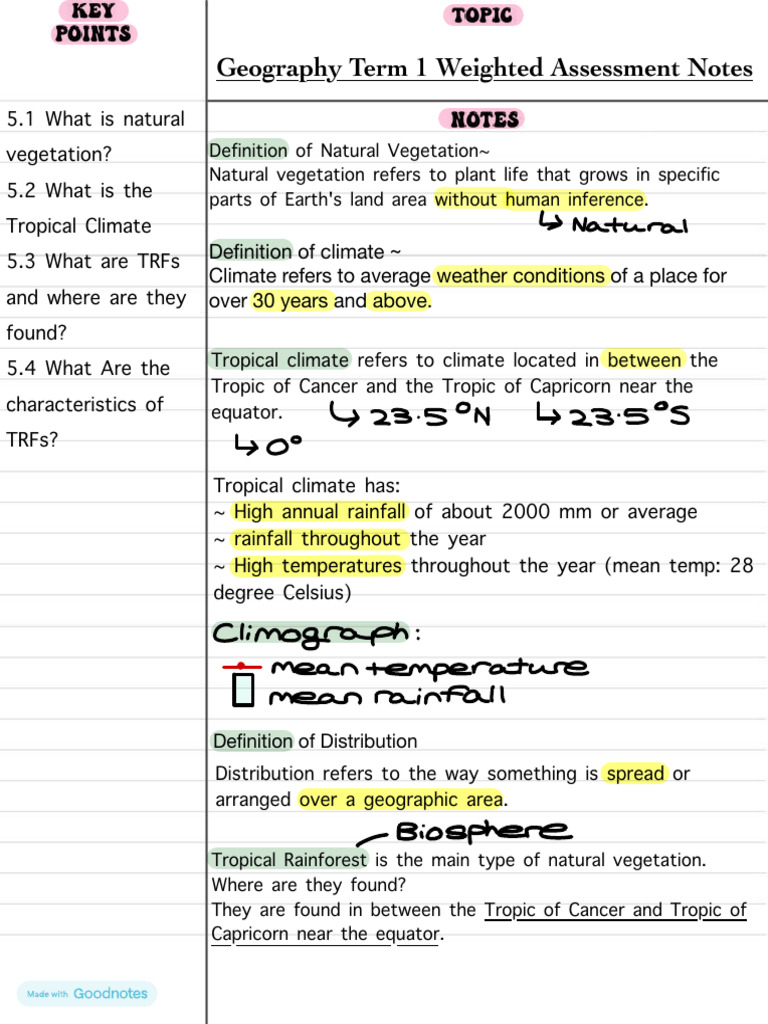 KEY
POINTS
TOPIC
Geography Term 1 Weighted Assessment Notes
5.1 What is natural
vegetation?
5.2 What is the
Tropical Climate
5.3 What are TRFs
and where are they
found?
5.4 What Are the
characteristics of
TRFs?
NOTES
Definition of Natural Vegetation~
Natural vegetation refers to plant life that grows in specific
parts of Earth's land area without human inference.
↳ Natural
Definition of climate ~
Climate refers to average weather conditions of a place for
over 30 years and above.
Tropical climate refers to climate located in between the
Tropic of Cancer and the Tropic of Capricorn near the
equator. ↳ 23.5°N ↳ 23.5°S
↳ 0°
Tropical climate has:
~ High annual rainfall of about 2000 mm or average
~ rainfall throughout the year
~ High temperatures throughout the year (mean temp: 28
degree Celsius)
Climograph:
mean temperature
mean rainfall
Definition of Distribution
Distribution refers to the way something is spread or
arranged over a geographic area.
Biosphere
Tropical Rainforest is the main type of natural vegetation.
Where are they found?
They are found in between the Tropic of Cancer and Tropic of
Capricorn near the equator.
Made with Goodnotes